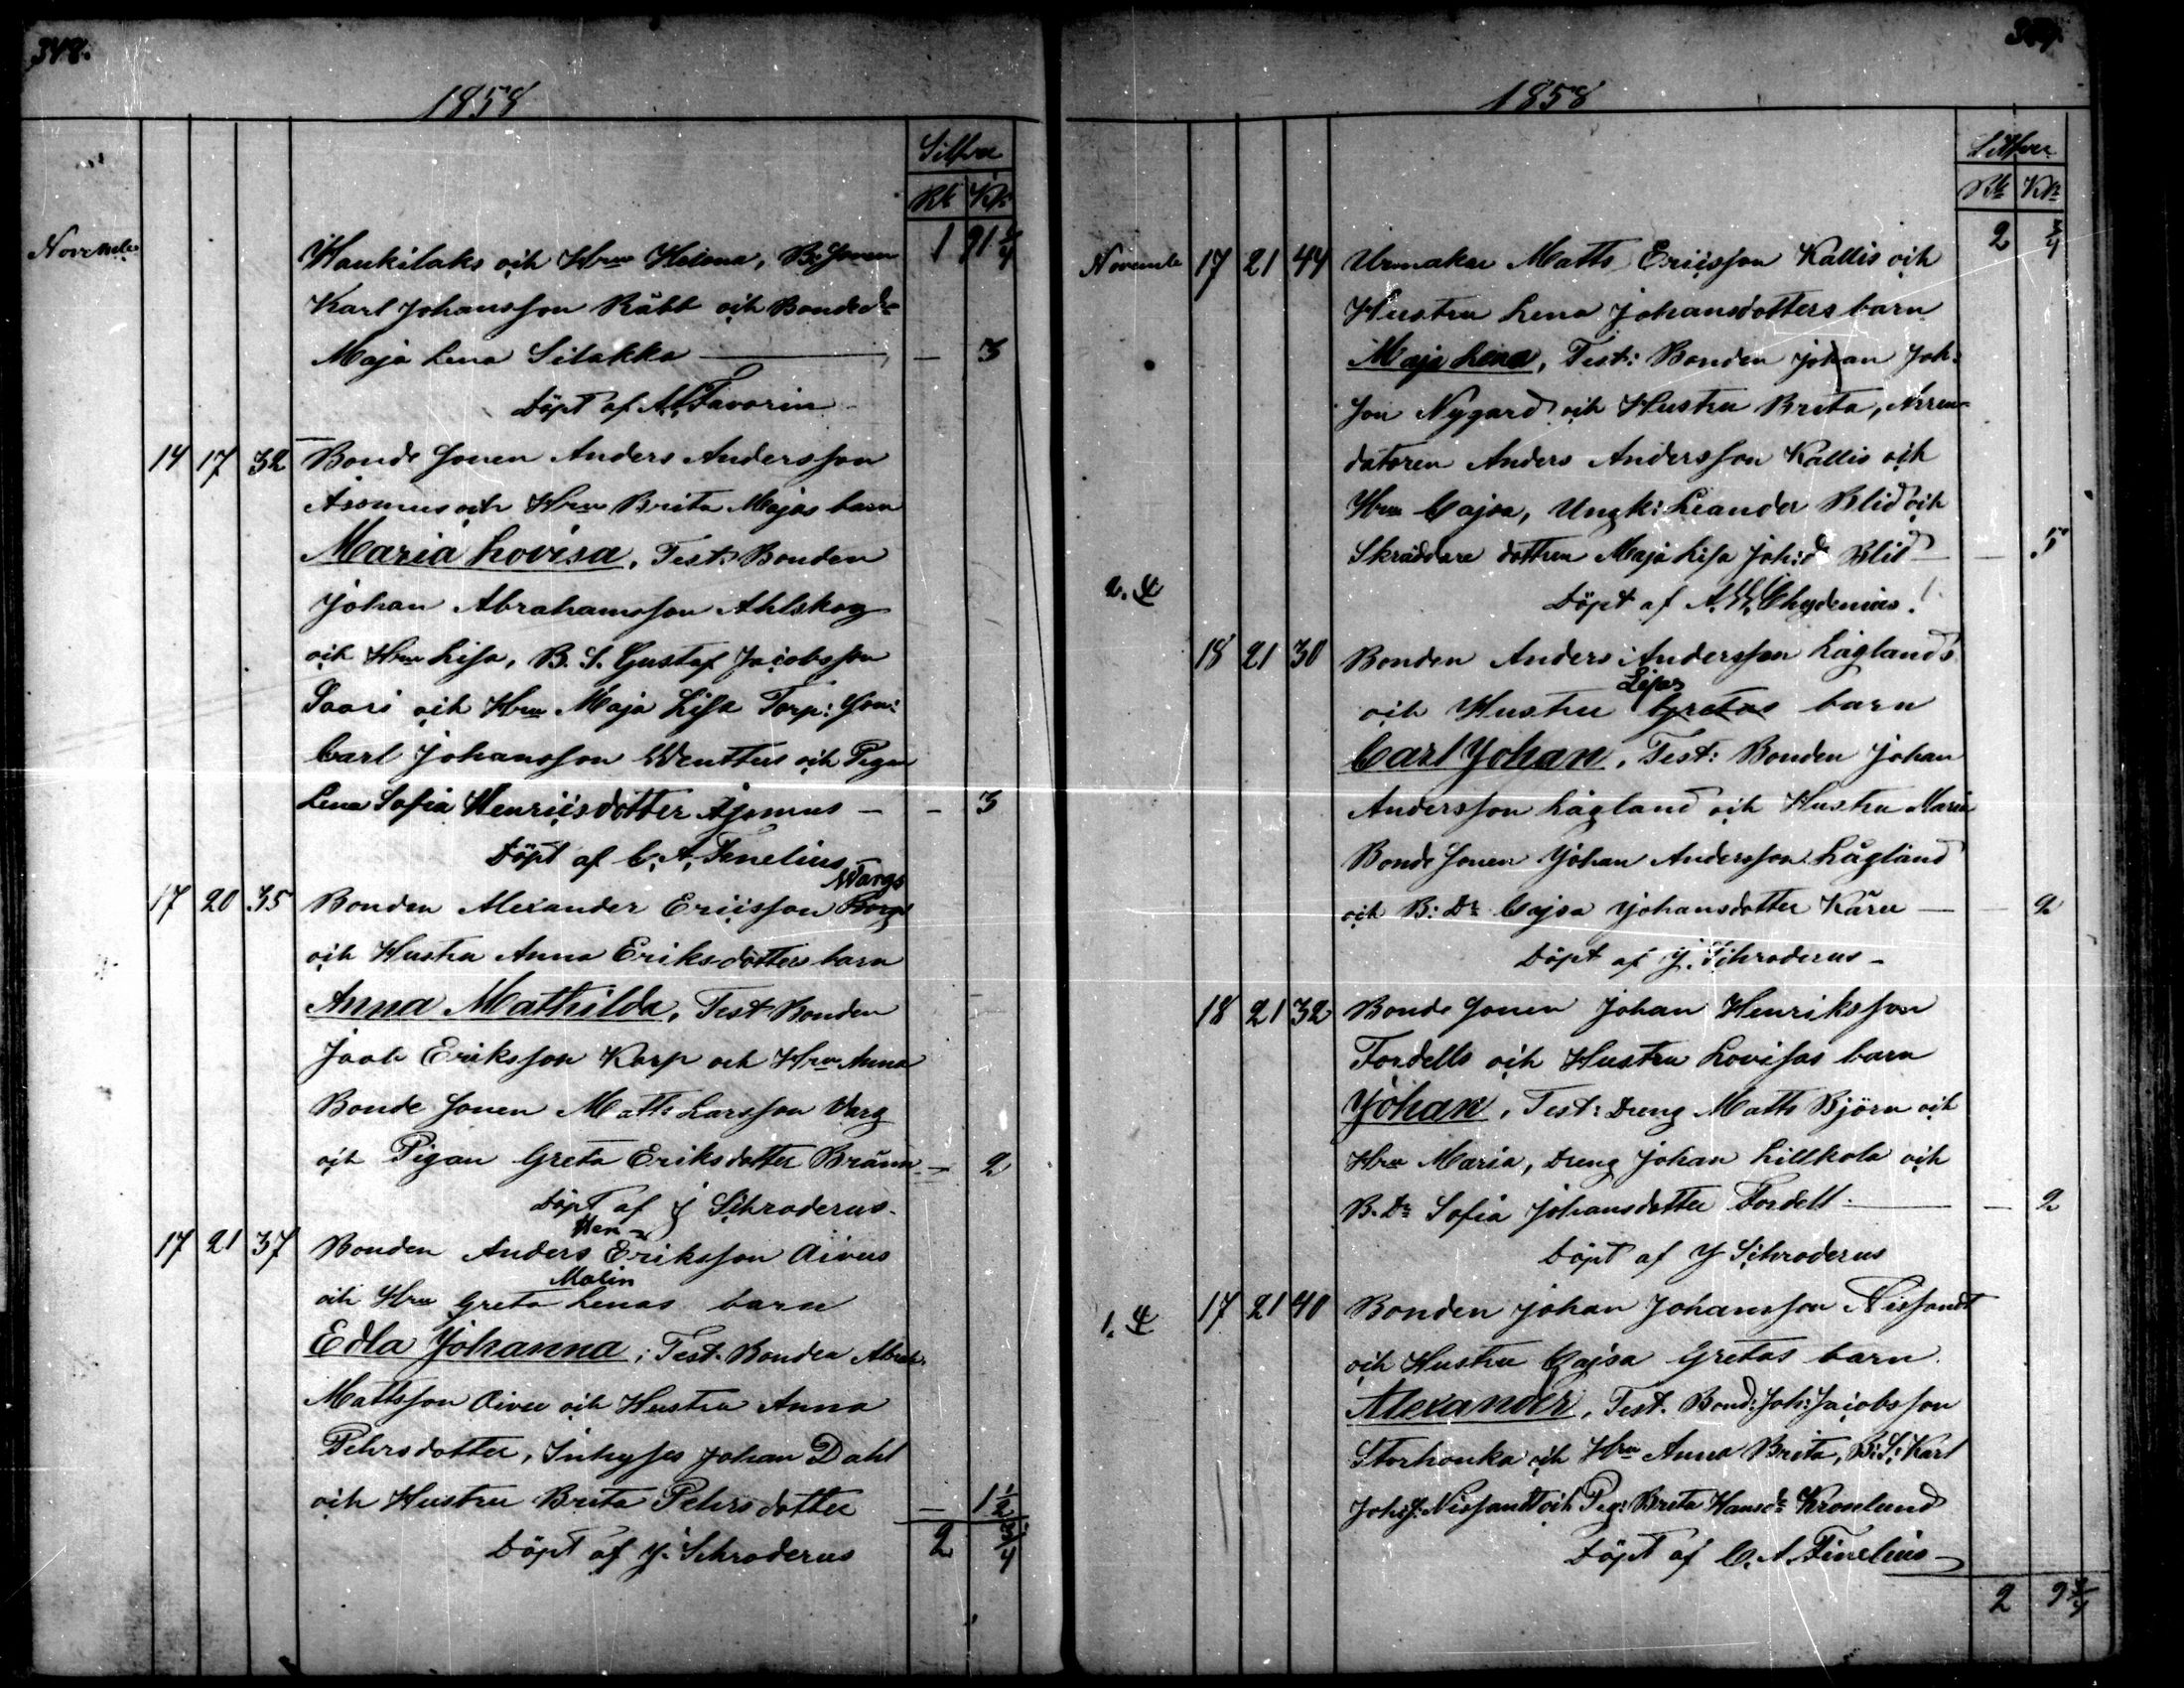 348.
1858
Silfver
Rb Kp
November
Haukilaks och Hru Helena, B: Sonen 1 91 3/4
Karl Johansson Räbb och Bonded:
Maja Lena Silakka — 3
Döpt af A. Favorin
14 17 32 Bonde Sonen Anders Andersson
Åsomus och Hru Brita Majas barn
Maria Lovisa, Test: Bonden
Johan Abrahamsson Ahlskog
och Hru Lisa, B. S. Gustaf Jacobsson
Saari och Hru Maja Lisa Torp: Son:
Carl Johansson Wenttus och Pigan
Lena Sofia Henricsdotter Åsomus — — 3
Döpt af C. A. Finelius
Wargs
17 20 35 Bonden Alexander Ericsson
och Hustru Anna Eriksdotters barn
Anna Mathilda, Test Bonden
Jaab Eriksson Korp och Hru Anna
Bonde Sonen Matts Larsson Varg
och Pigan Greta Eriksdotter Bränn — 2
Döpt af J Schroderus
Hen-
17 21 37 Bonden Anders Eriksson Aivus
Malin
och Hru Greta Lenas barn
Edla Johanna; Test. Bonden Abrah.
Mattsson Aivu och Hustru Anna
Pehrsdotter, Inhyses Johan Dahl
och Hustru Brita Pehrsdotter — 1 1/2
Döpt af J. Schroderus 2 3/4
1858
Silfver
Rb Kp
2 3/4
November 17 21 44 Urmakar Matts Ericsson Kallis och
Hustru Lena Johansdotters barn
Maja Lena, Test: Bonden Johan Joh:
son Nygård och Hustru Brita, Arren-
datoren Anders Andersson Kallis och
Hru Cajsa, Ungk: Leander Blid och
Skräddare dottren Maja Lisa Joh:d Blid — — 5
Döpt af A. W. Chydenius.
18 21 30 Bonden Anders Andersson Låglands
Lisas
och Hustru Gretas barn
Carl Johan, Test: Bonden Johan
Andersson Lågland och Hustru Maria
Bonde Sonen Johan Andersson Lågland
och B: Dr Cajsa Johansdotter Kåru — — 2
Döpt af J. Schroderus
18 21 32 Bonde Sonen Johan Henriksson
Fordells och Hustru Lovisas barn
Johan, Test: Dreng Matts Björn och
Hru Maria, Dreng Johan Lillkola och
B. Dr Sofia Johansdotter Fordell — — 2
Döpt af J Schroderus
17 21 40 Bonden Johan Johansson Nissandt
och Hustru Cajsa Gretas barn
Alexander, Test. Bond: Joh: Jacobsson
Storhonka och Hru Anna Brita, B: S: Karl
Joh:s: Nissandt och Pig: Brita Hansdr Kronlund
Döpt af C. A. Finelius
2 9 3/4